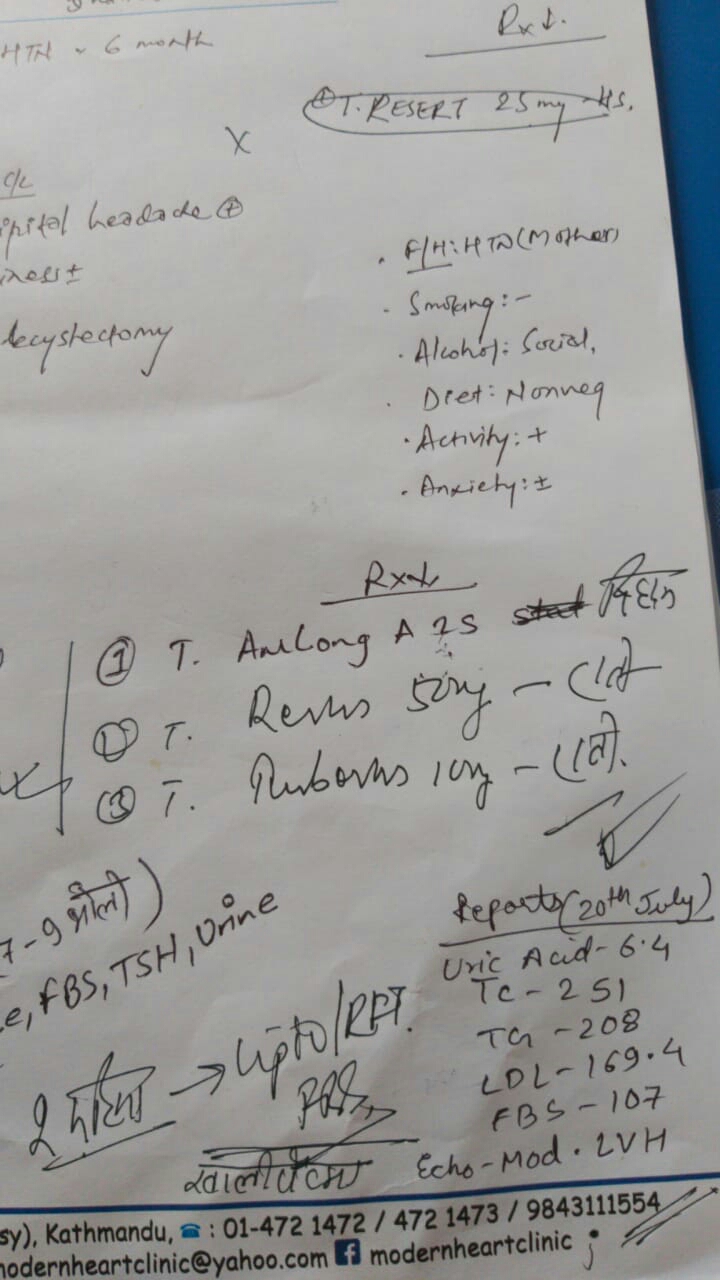 HTN ~ 6 month
Rx↓.
T. RESERT 25 mg HS.
X
c/c
ipital headache ⊕
iness ±
lecystectomy
· F/H: HTN (Mother)
· Smoking: -
· Alcohol: Social,
· Diet: Nonveg
· Activity: +
· Anxiety: ±
Rx↓
① T. Amlong A 25
T. 50mg -
③ T. 10mg -
7-9
e, FBS, TSH, Urine
2 → Lipid/RFT.
Reports (20th July)
Uric Acid - 6.4
TC - 251
TG - 208
LDL - 169.4
FBS - 107
Echo - Mod. LVH
sy), Kathmandu, ☎ : 01-472 1472 / 472 1473 / 9843111554
modernheartclinic@yahoo.com f modernheartclinic